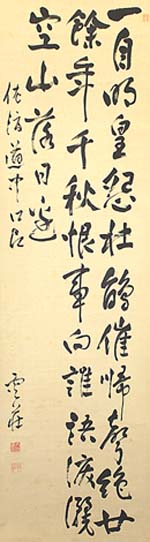 一自明皇怨杜鵑催歸聲絶廿
餘年千秋恨事向誰語淚灑
空山落日邊
佐渡道中口占
雲莊